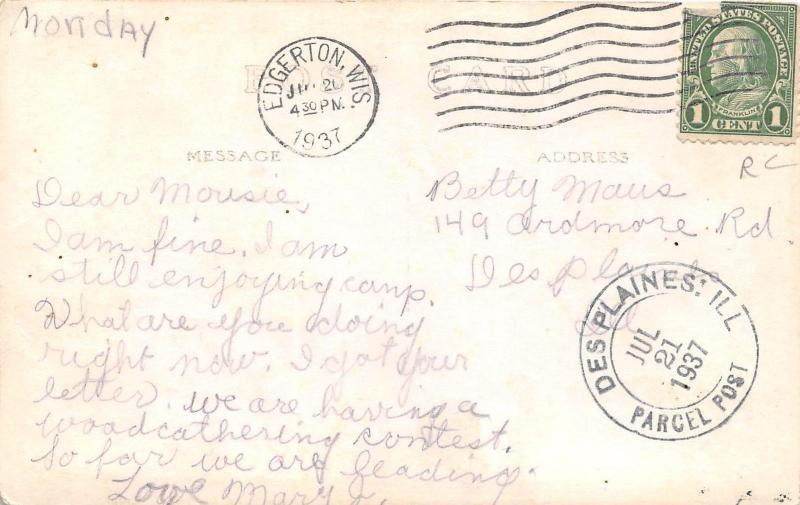 Monday
EDGERTON, WIS.
4 30 PM
1937
POST CARD
UNITED STATES POSTAGE
FRANKLIN
1 CENT 1
MESSAGE
ADDRESS
RC
Dear Mousie,
I am fine. I am
still enjoying camp.
What are you doing
right now. I got your
letter. we are having a
woodcathering contest.
So far we are leading.
Love Mary
Betty Maus
149 Ardmore Rd
Des Plaines
Ill
DES PLAINES, ILL
JUL
21
1937
PARCEL POST